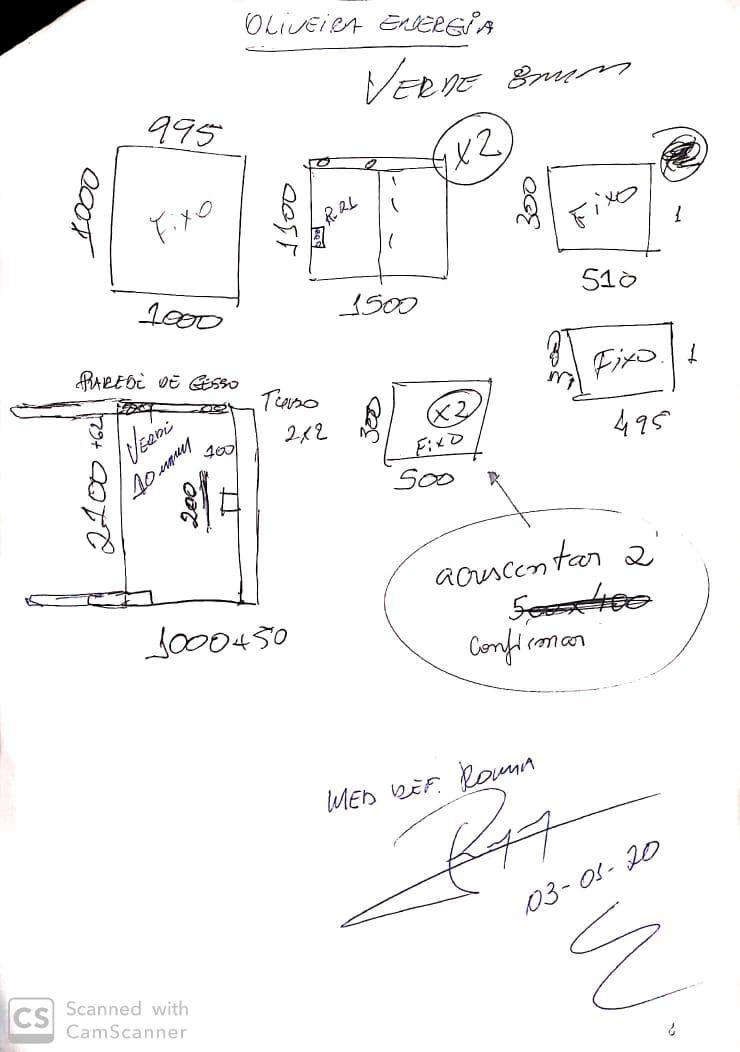 OLIVEIRA ENERGIA
VERDE 8mm
995
1000
Fixo
1000
x2
1100
R.21
1500
300
Fixo
1
510
Fixo.
1
495
PAREDE DE GESSO
2100 +62
VERDE
10mm
100
200
1000+50
2x2
300
x2
Fixo
500
acrescentar 2
500x400
Confirmar
MED DEF. ROMMA
03-01-20
CS Scanned with
CamScanner